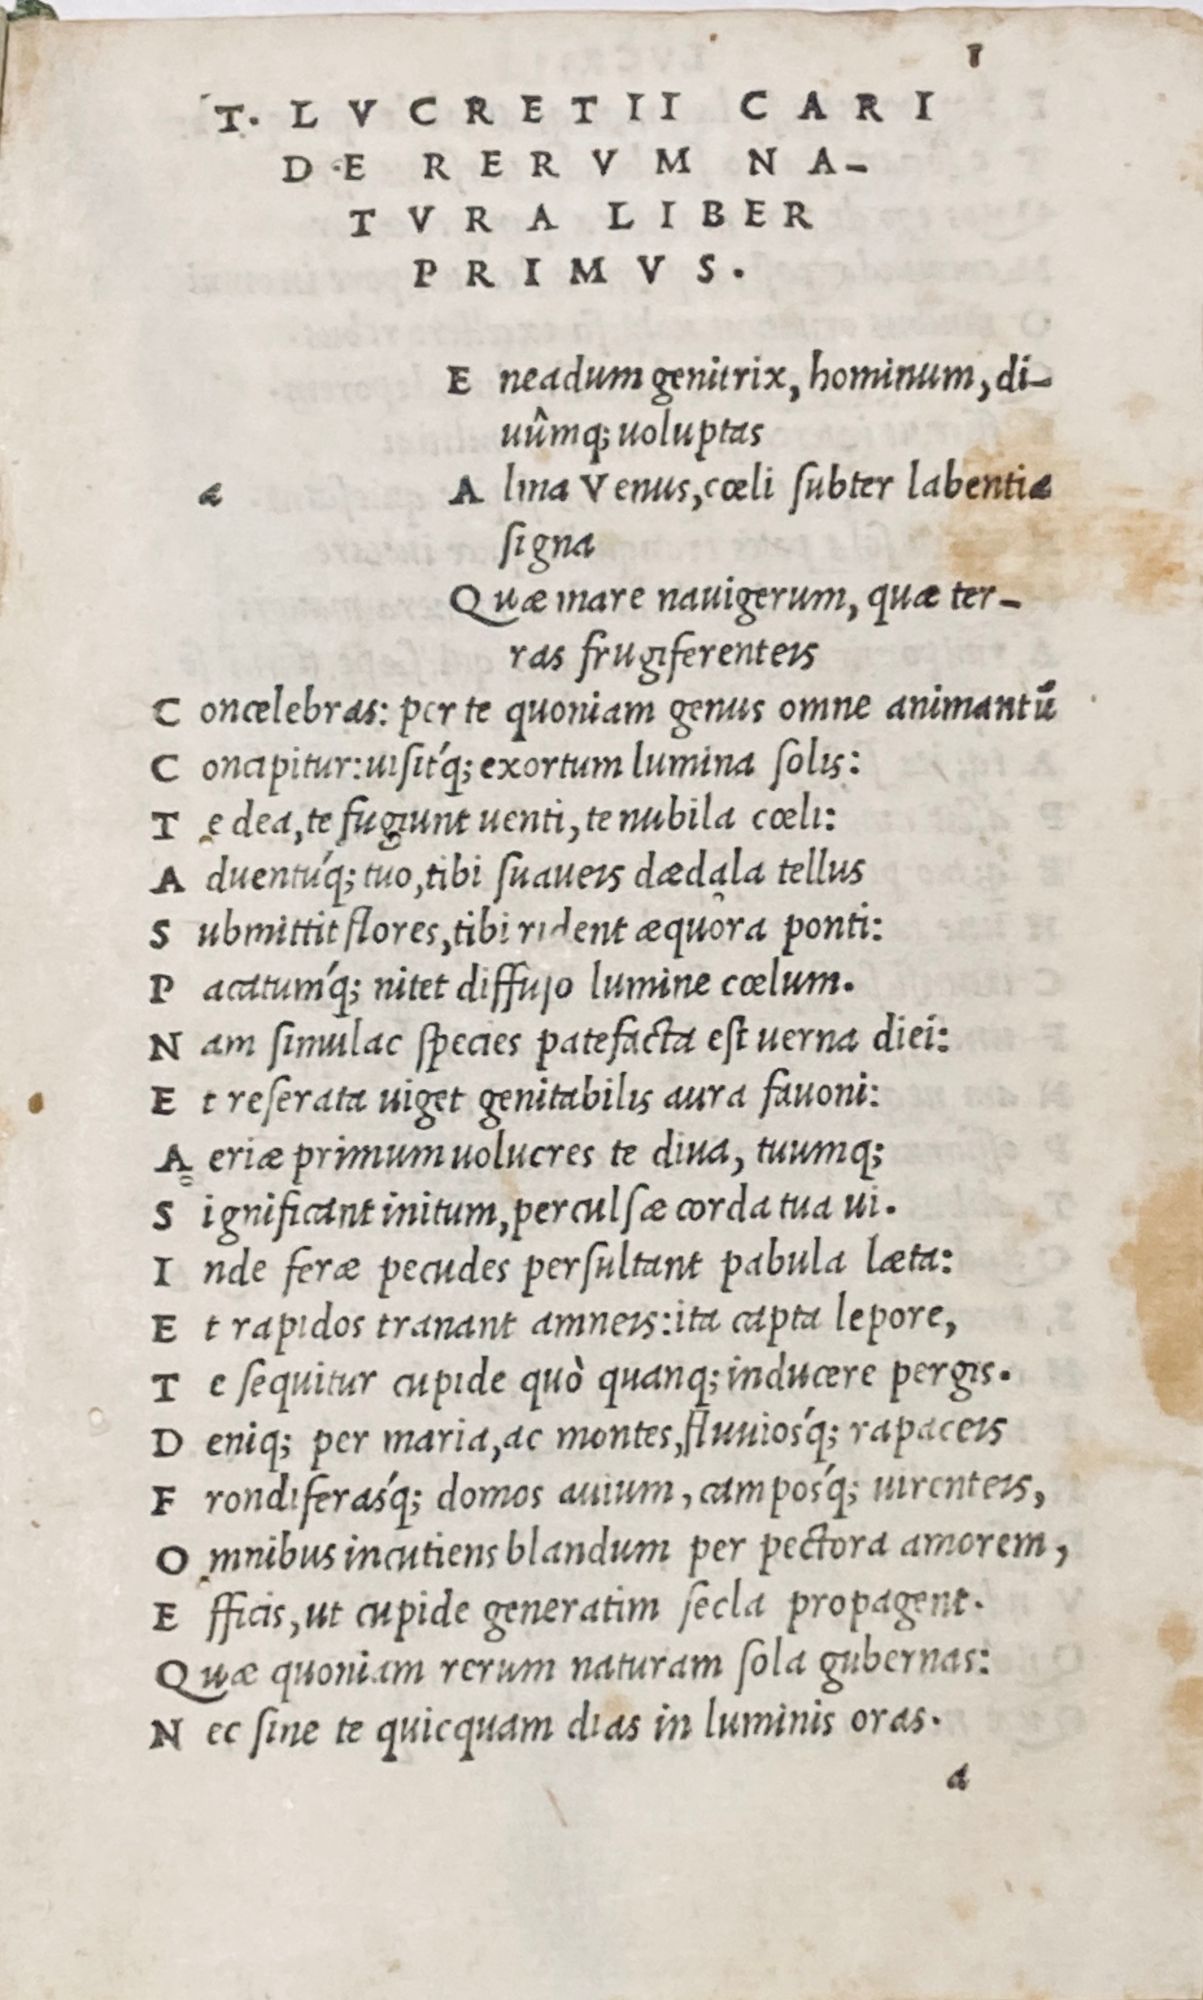 1
T. LVCRETII CARI
DE RERVM NA-
TVRA LIBER
PRIMVS.
E neadum genitrix, hominum, di-
uûmq; uoluptas
æ
A lma Venus, cœli ſubter labentia
ſigna
Q uæ mare nauigerum, quæ ter-
ras frugiferenteis
C oncelebras: per te quoniam genus omne animantū
C oncipitur: uiſit'q; exortum lumina ſolis:
T e dea, te fugiunt uenti, te nubila cœli:
A duentu'q; tuo, tibi ſuaueis dædala tellus
S ubmittit flores, tibi rident æquora ponti:
P acatum'q; nitet diffuſo lumine cœlum.
N am ſimulac ſpecies patefacta eſt uerna diei:
E t reſerata uiget genitabilis aura fauoni:
A eriæ primum uolucres te diua, tuumq;
S ignificant initum, perculſæ corda tua ui.
I nde feræ pecudes perſultant pabula læta:
E t rapidos tranant amneis: ita capta lepore,
T e ſequitur cupide quò quanq; inducere pergis.
D eniq; per maria, ac montes, fluuios'q; rapaceis
F rondiferas'q; domos auium, campos'q; uirenteis,
O mnibus incutiens blandum per pectora amorem,
E fficis, ut cupide generatim ſecla propagent.
Q uæ quoniam rerum naturam ſola gubernas:
N ec ſine te quicquam dias in luminis oras.
a